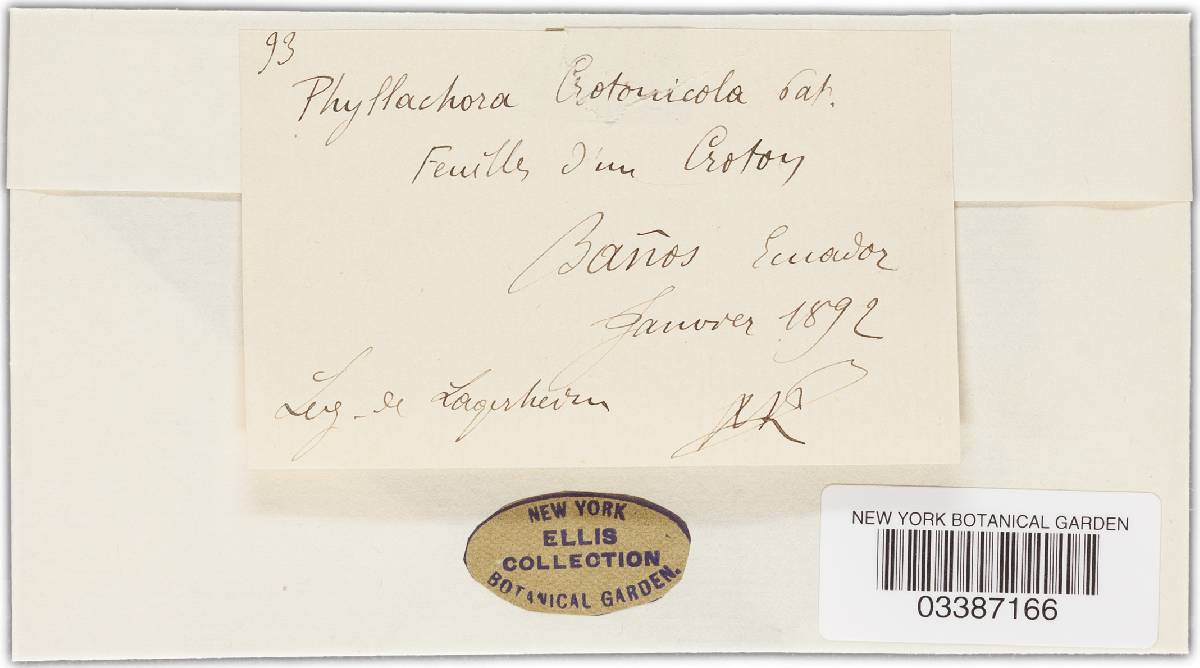 93
Phyllachora Crotonicola Pat.
Feuilles d'un Croton
Baños Ecuador
Janvier 1892
Leg. de Lagerheim
NEW YORK
ELLIS
COLLECTION
BOTANICAL GARDEN.
NEW YORK BOTANICAL GARDEN
03387166